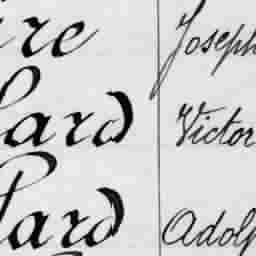 ire Joseph
lard Victor
lard Adolp